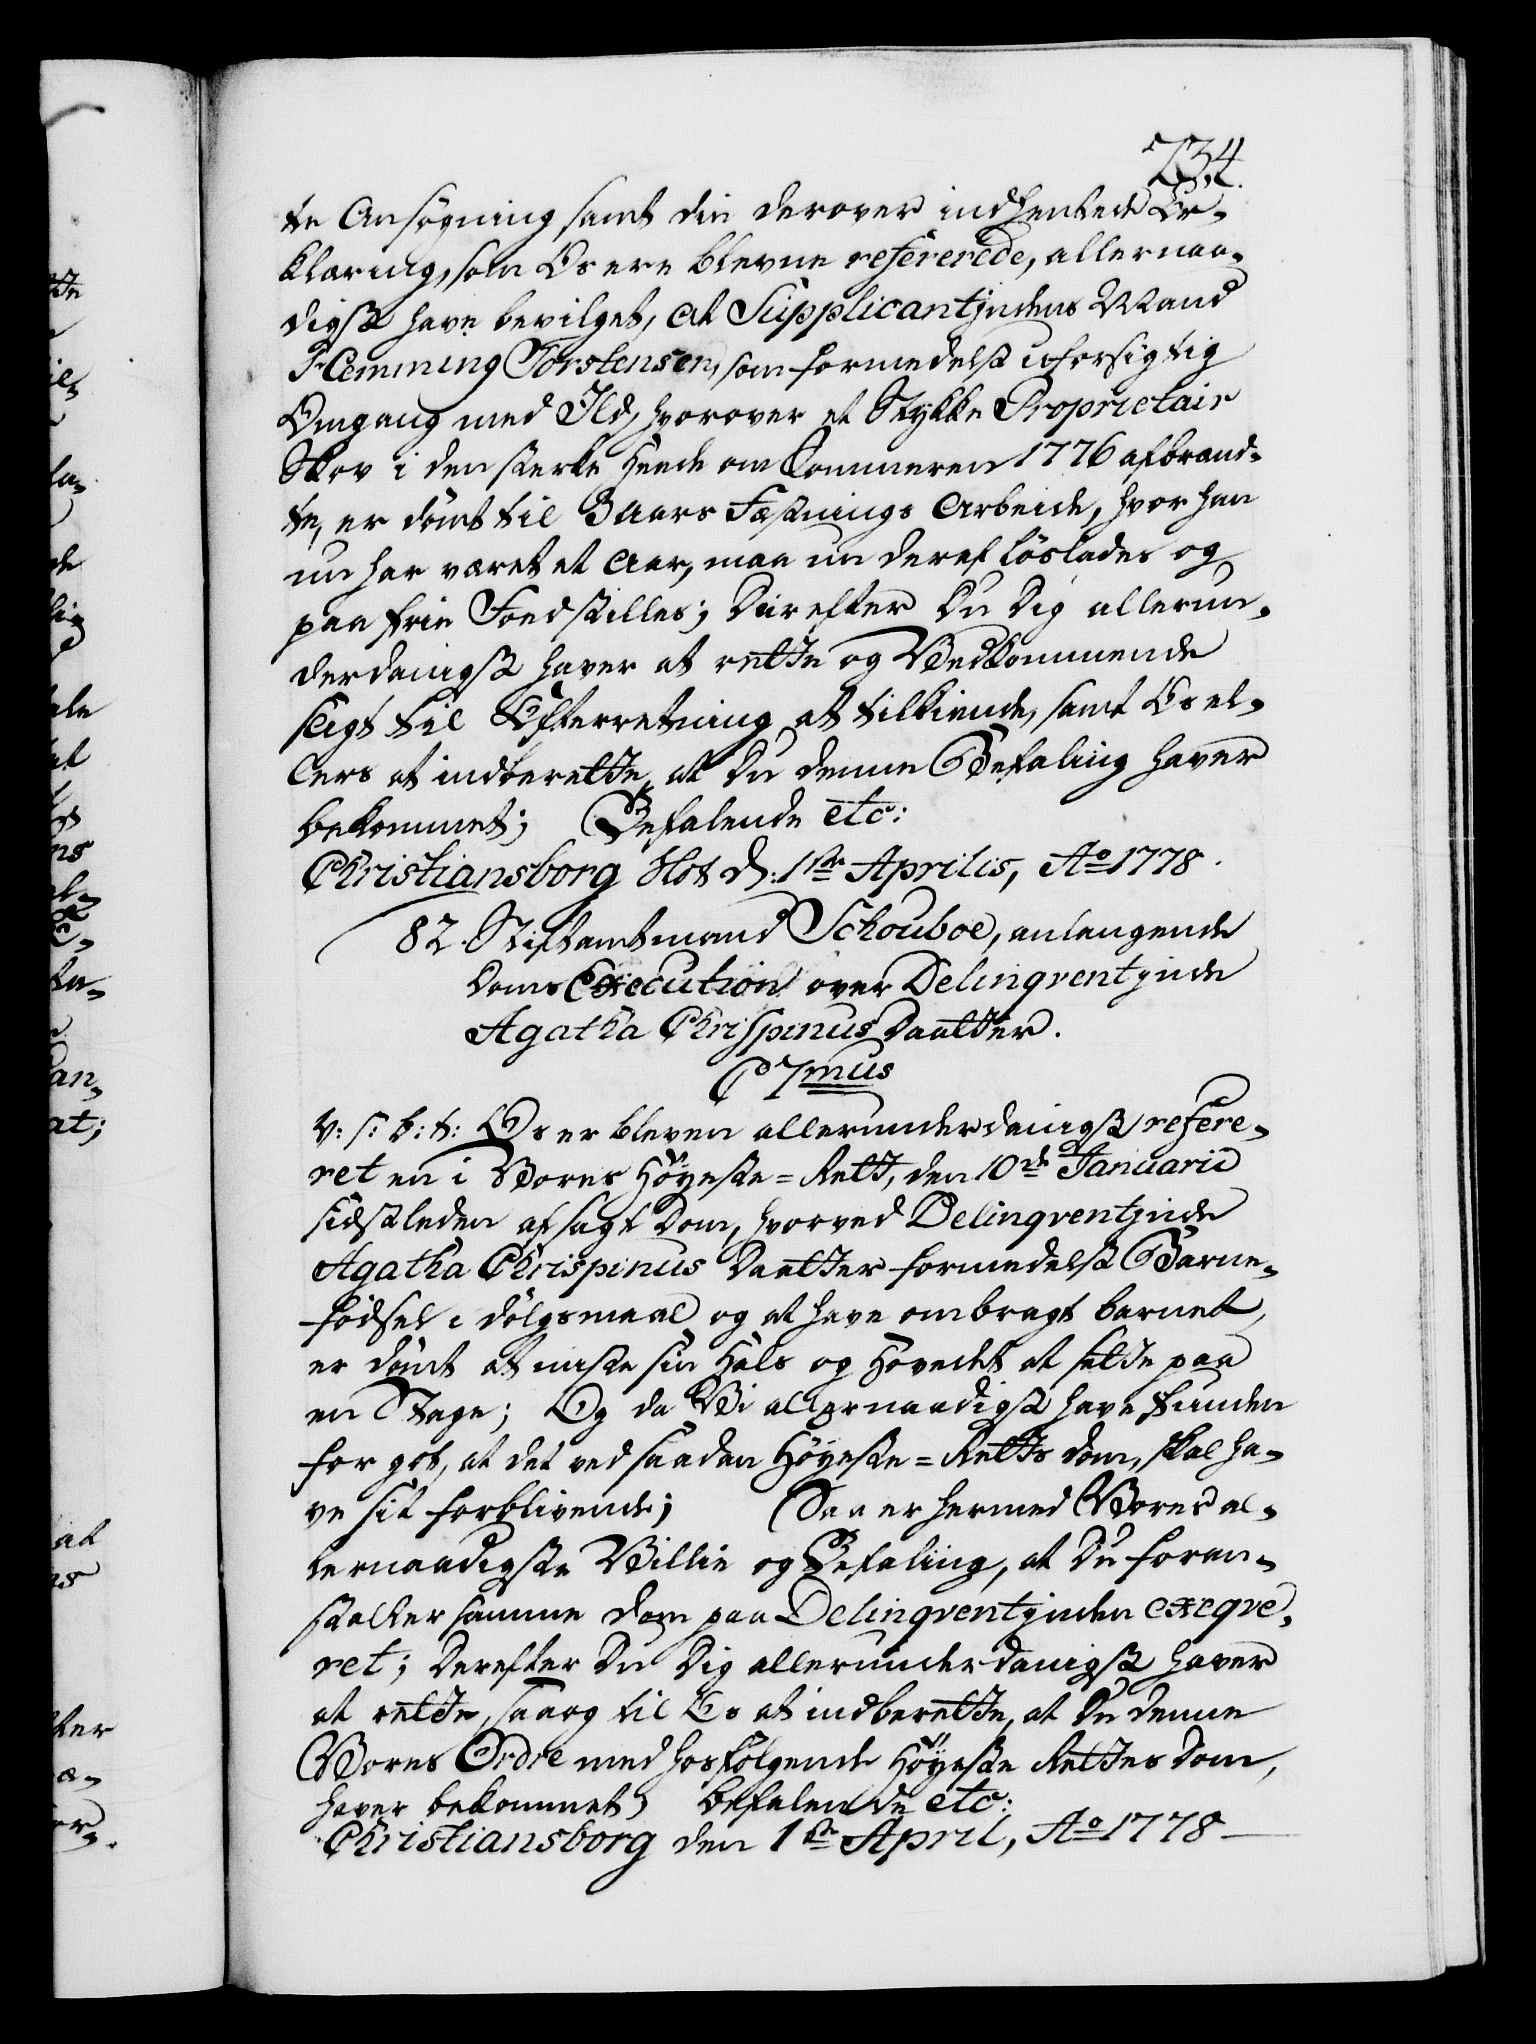 734.
te Ansøgning samt din derover indhentede Er-
klæring, som Os ere blevne refererede, allernaa-
digst have bevilget, at Supplicantindens Mand
Flemming Torstensen, som formedelst uforsigtig
Omgang med Ild, hvorover et Stykke Proprietair
Skov i den sterke Heede om Sommeren 1776 afbrænd-
te, er dømt til 3 Aars Fæstnings Arbeide, hvor han
nu har været et Aar, maa nu deraf løslades og
paa frie Foed stilles; Derefter Du Dig allerun-
derdanigst haver at rette og Vedkommende
sligt til Efterretning at tilkiende, samt Os el-
lers at indberette, at Du denne Befaling haver
bekommet; Befalende etc:
Christiansborg Slot d: 1ste Aprilis, Ao 1778.
82. Stiftamtmand Schouboe, anlangende
Doms Execution over Delinqventinde
Agatha Chrispinus Daatter.
C 7mus
V: s: b: t: Os er bleven allerunderdanigst refere-
ret en i Vores Høyeste=Rett, den 10de Januarii
sidstleden afsagt Dom, hvorved Delinqventinde
Agatha Chrispinus Daatter formedelst Barne-
fødsel i dølgsmaal og at have ombragt barnet,
er dømt at miste sin Hals og Hovedet at sette paa
en Stage; Og da Vi allernaadigst have funden
for got, at det ved saadan Høyeste=Retts Dom, skal ha-
ve sit forblivende; Saa er hermed Vores al-
lernaadigste Villie og Befaling, at Du foran-
stalter samme Dom paa Delinqventinden exeqve-
ret; Derefter Du Dig allerunderdanigst haver
at rette, saa og til Os at indberette, at Du denne
Vores Ordre med hosfølgende Høyeste Rettes Dom,
haver bekommet; befalende etc:
Christiansborg den 1ste April, Ao 1778